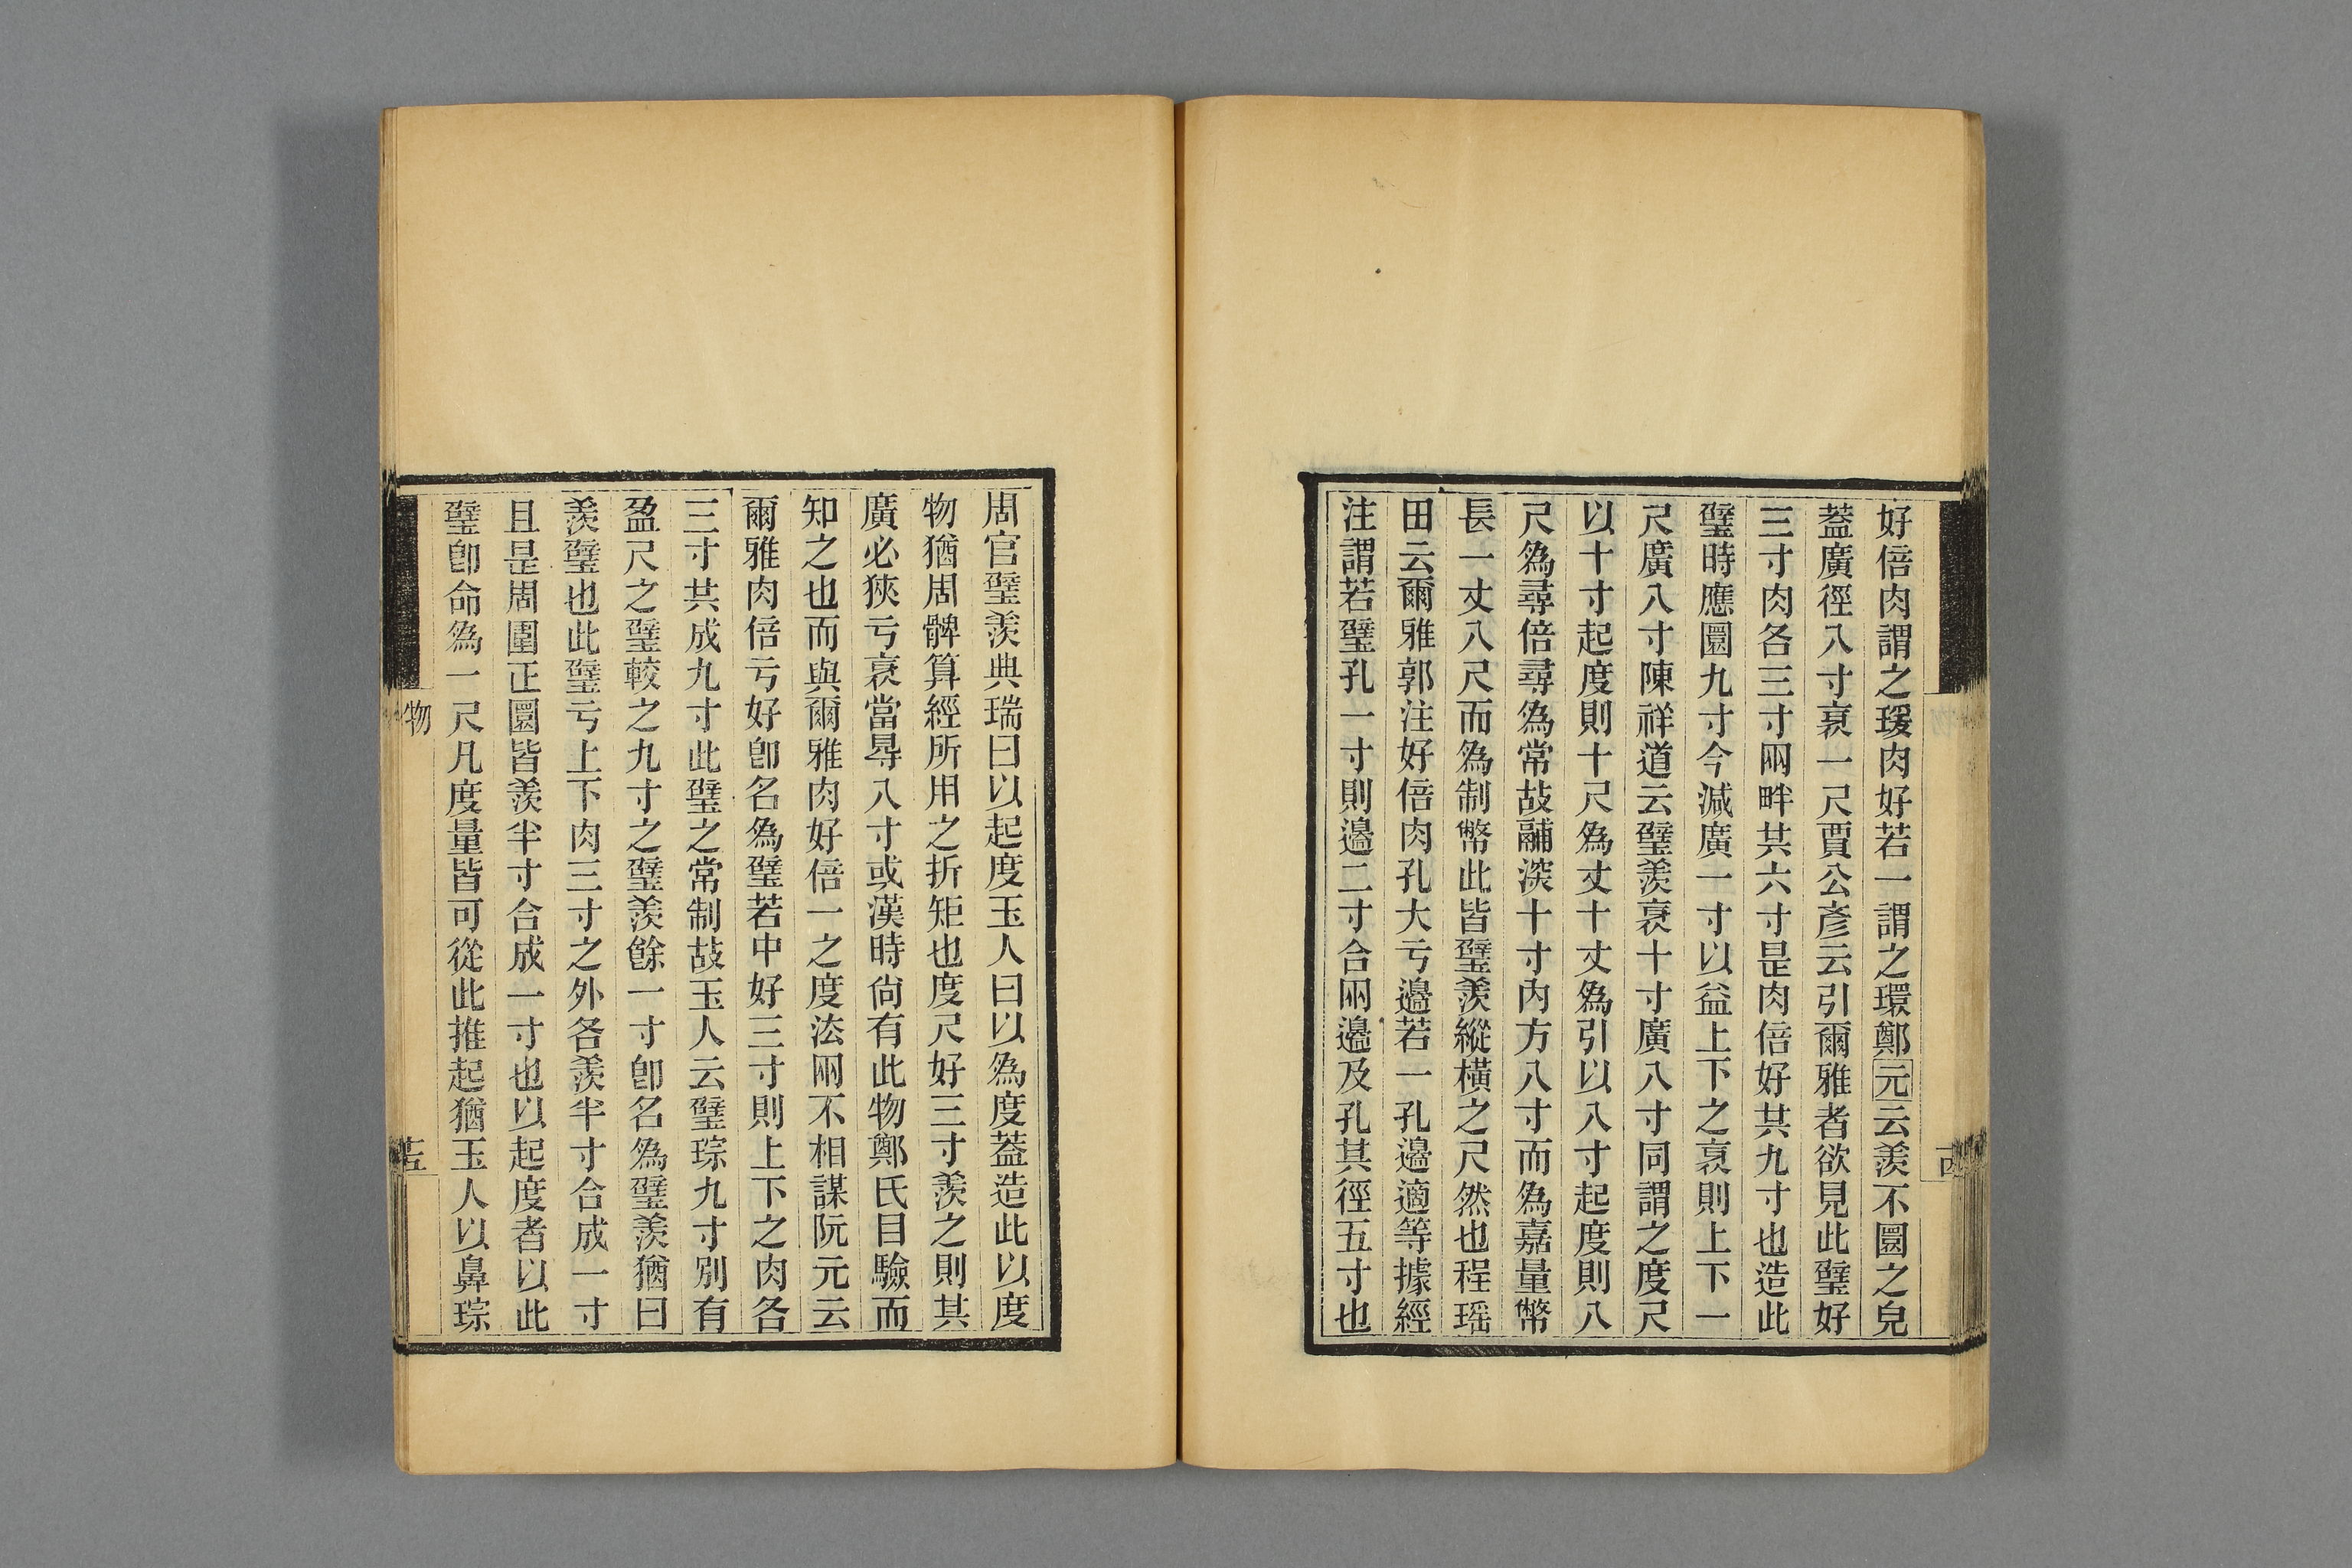 好倍肉謂之瑗肉好若一謂之環鄭元云羨不圜之皃
葢廣徑八寸袤一尺賈公彥云引爾雅者欲見此璧好
三寸肉各三寸㒳畔共六寸是肉倍好共九寸也造此
璧時應圜九寸今減廣一寸以益上下之袤則上下一
尺廣八寸陳祥道云璧羨袤十寸廣八寸同謂之度尺
以十寸起度則十尺爲丈十丈爲引以八寸起度則八
尺爲尋倍尋爲常故鬴深十寸內方八寸而爲嘉量幣
長一丈八尺而爲制幣此皆璧羨縱橫之尺然也程瑶
田云爾雅郭注好倍肉孔大亏邉若一孔邉適等據經
注謂若璧孔一寸則邉二寸合㒳邉及孔其徑五寸也
周官璧羨典瑞曰以起度玉人曰以爲度葢造此以度
物猶周髀算經所用之折矩也度尺好三寸羨之則其
廣必狹亏袤當㝵八寸或漢時尙有此物鄭氏目驗而
知之也而與爾雅肉好倍一之度法㒳不相謀阮元云
爾雅肉倍亏好卽名爲璧若中好三寸則上下之肉各
三寸共成九寸此璧之常制故玉人云璧琮九寸別有
盈尺之璧較之九寸之璧羨餘一寸卽名爲璧羨猶曰
羨璧也此璧亏上下肉三寸之外各羨半寸合成一寸
且是周圍正圜皆羨半寸合成一寸也以起度者以此
璧卽命爲一尺凡度量皆可從此推起猶玉人以鼻琮
物